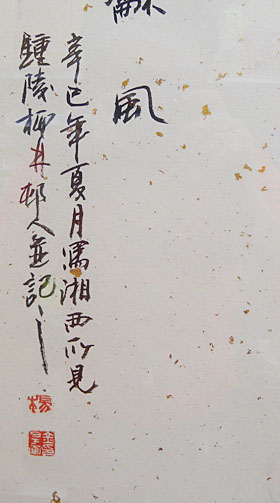 風
辛巳年夏月寫湘西所見
鍾陵柳井邨人並記之
楊